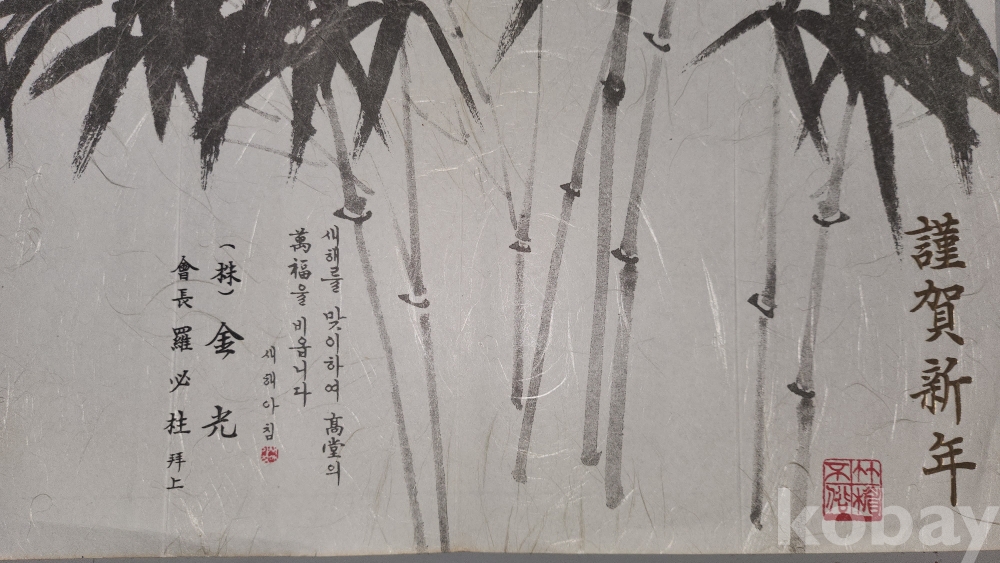 謹賀新年
새해를 맞이하여 高堂의
萬福을 비옵니다
새해아침
(株) 金光
會長 羅必柱 拜上
kobay